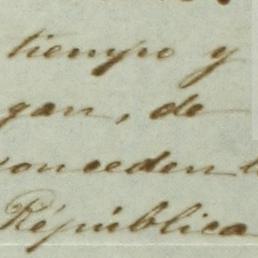 tiempo y
gan, de
conceden l
República